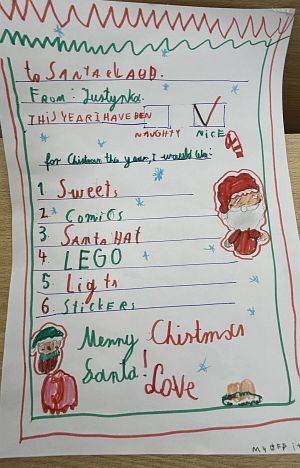 to SANTA CLAUD.
From: Justynka.
THIS YEAR I HAVE BEN
NAUGHTY NICE
for Chistmas the year, I would like:
1 Sweets
2. Comics
3. SANTA HAT
4. LEGO
5. Ligts
6. Stickers
Menny Chistmas
Santa!
Love